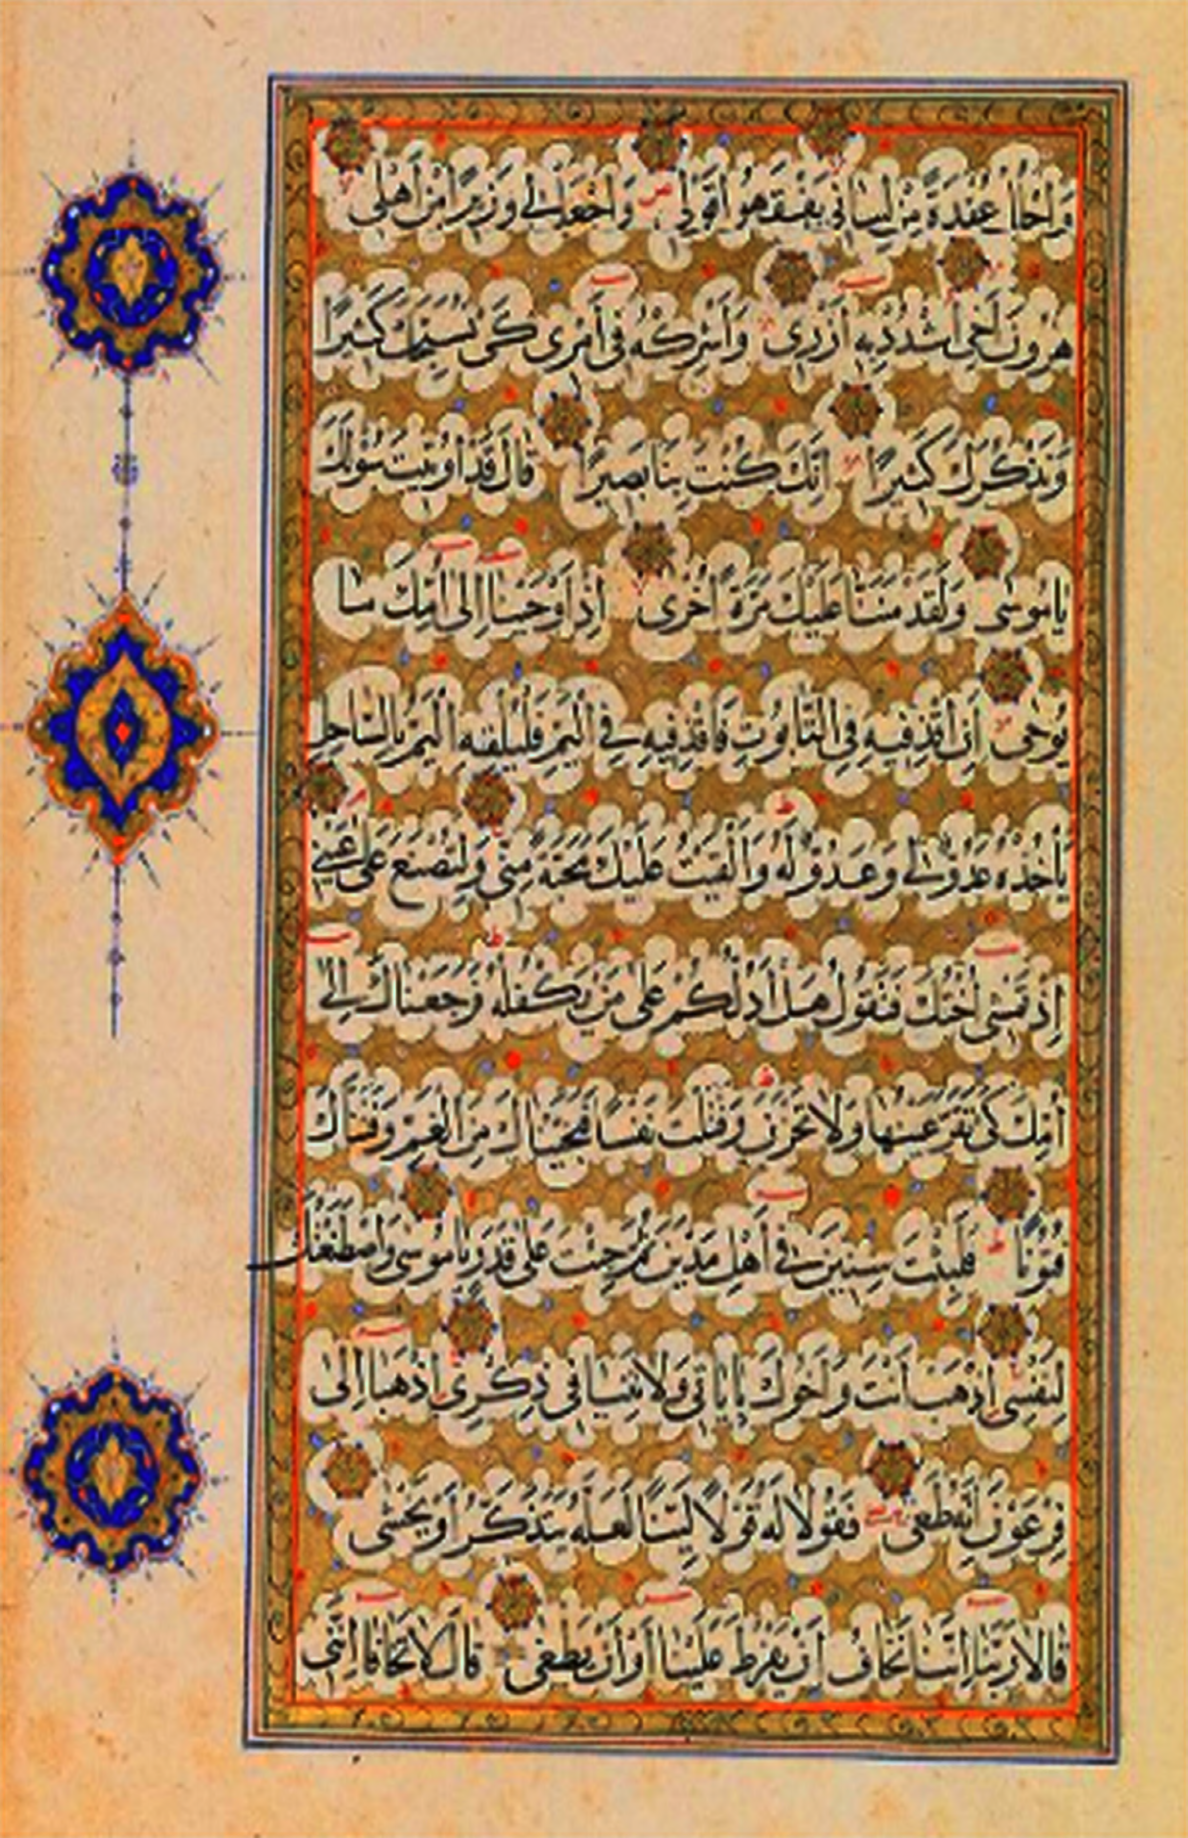 وَاحْلُلْ عُقْدَةً مِنْ لِسَانِي يَفْقَهُوا قَوْلِي وَاجْعَلْ لِي وَزِيرًا مِنْ أَهْلِي
هٰرُونَ أَخِي اشْدُدْ بِهِ أَزْرِي وَأَشْرِكْهُ فِي أَمْرِي كَيْ نُسَبِّحَكَ كَثِيرًا
وَنَذْكُرَكَ كَثِيرًا إِنَّكَ كُنْتَ بِنَا بَصِيرًا قَالَ قَدْ أُوتِيتَ سُؤْلَكَ
يَامُوسَى وَلَقَدْ مَنَنَّا عَلَيْكَ مَرَّةً أُخْرَى إِذْ أَوْحَيْنَا إِلَى أُمِّكَ مَا
يُوحَى أَنِ اقْذِفِيهِ فِي التَّابُوتِ فَاقْذِفِيهِ فِي الْيَمِّ فَلْيُلْقِهِ الْيَمُّ بِالسَّاحِلِ
يَأْخُذْهُ عَدُوٌّ لِي وَعَدُوٌّ لَهُ وَأَلْقَيْتُ عَلَيْكَ مَحَبَّةً مِنِّي وَلِتُصْنَعَ عَلَى عَيْنِي
إِذْ تَمْشِي أُخْتُكَ فَتَقُولُ هَلْ أَدُلُّكُمْ عَلَى مَنْ يَكْفُلُهُ فَرَجَعْنَاكَ إِلَى
أُمِّكَ كَيْ تَقَرَّ عَيْنُهَا وَلَا تَحْزَنَ وَقَتَلْتَ نَفْسًا فَنَجَّيْنَاكَ مِنَ الْغَمِّ وَفَتَنَّاكَ
فُتُونًا فَلَبِثْتَ سِنِينَ فِي أَهْلِ مَدْيَنَ ثُمَّ جِئْتَ عَلَى قَدَرٍ يَامُوسَى وَاصْطَنَعْتُكَ
لِنَفْسِي اذْهَبْ أَنْتَ وَأَخُوكَ بِآيَاتِي وَلَا تَنِيَا فِي ذِكْرِي اذْهَبَا إِلَى
فِرْعَوْنَ إِنَّهُ طَغَى فَقُولَا لَهُ قَوْلًا لَيِّنًا لَعَلَّهُ يَتَذَكَّرُ أَوْ يَخْشَى
قَالَا رَبَّنَا إِنَّنَا نَخَافُ أَنْ يَفْرُطَ عَلَيْنَا أَوْ أَنْ يَطْغَى قَالَ لَا تَخَافَا إِنَّنِي